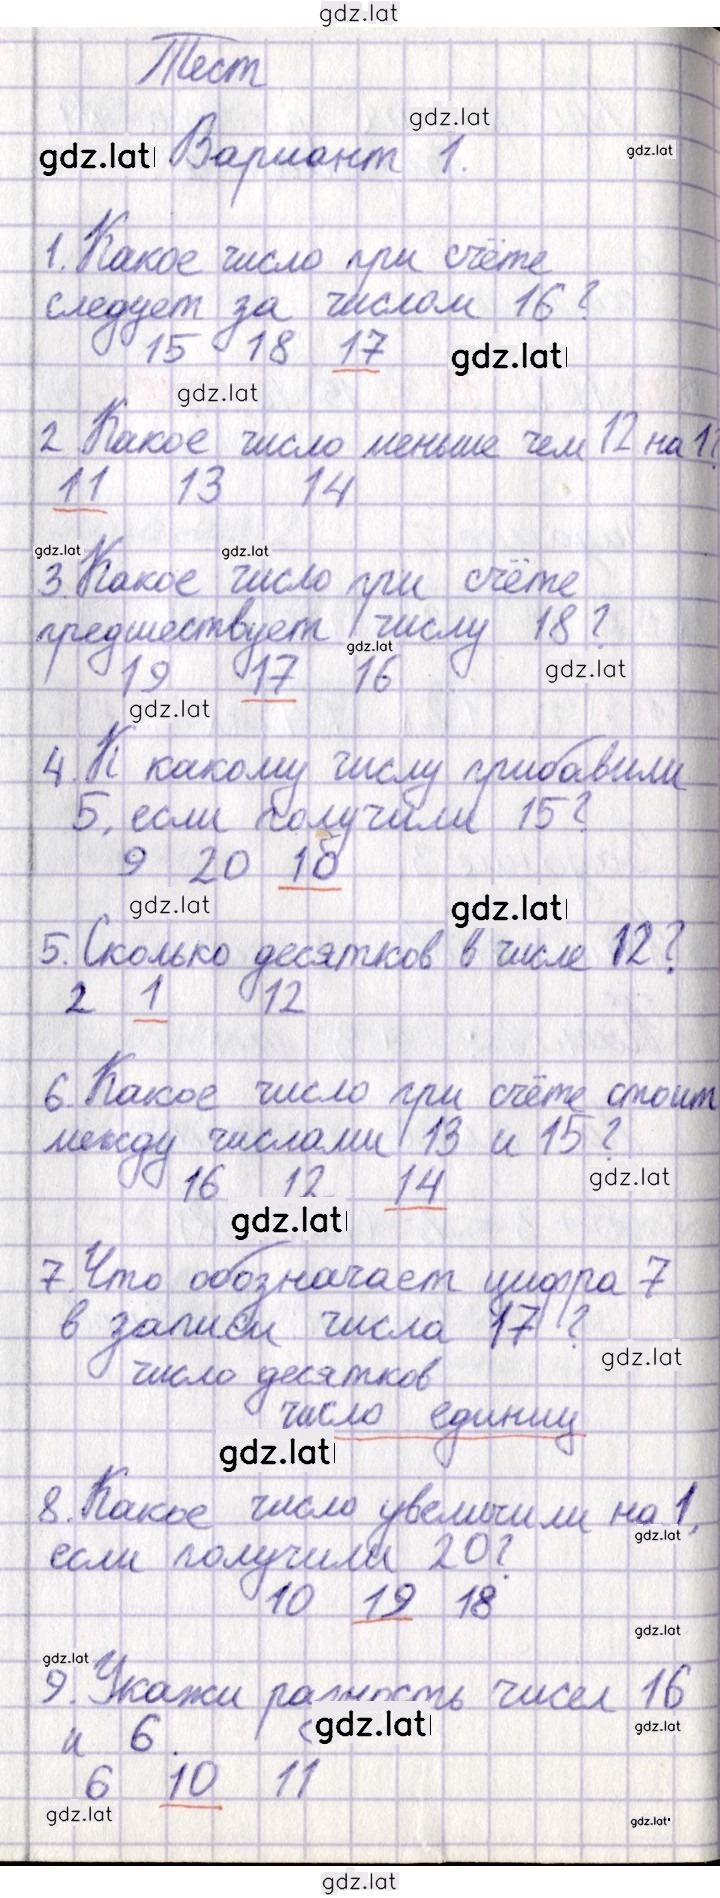 gdz.lat
Тест
gdz.lat
gdz.lat Вариант 1. gdz.lat
1. Какое число при счёте
следует за числом 16?
15 18 17 gdz.lat
gdz.lat
2 Какое число меньше чем 12 на 1?
11 13 14
gdz.lat gdz.lat
3. Какое число при счёте
предшествует числу 18?
gdz.lat
19 17 16 gdz.lat
gdz.lat
4. К какому числу прибавили
5, если получили 15?
9 20 10
gdz.lat gdz.lat
5. Сколько десятков в числе 12?
2 1 12
6. Какое число при счёте стоит
между числами 13 и 15?
16 12 14 gdz.lat
gdz.lat
7. Что обозначает цифра 7
в записи числа 17?
gdz.lat
число десятков
число единиц
gdz.lat
8. Какое число увеличили на 1,
gdz.lat
если получили 20?
10 19 18
gdz.lat
gdz.lat
9. Укажи разность чисел 16
и 6. gdz.lat gdz.lat
6 10 11
gdz.lat gdz.lat
gdz.lat